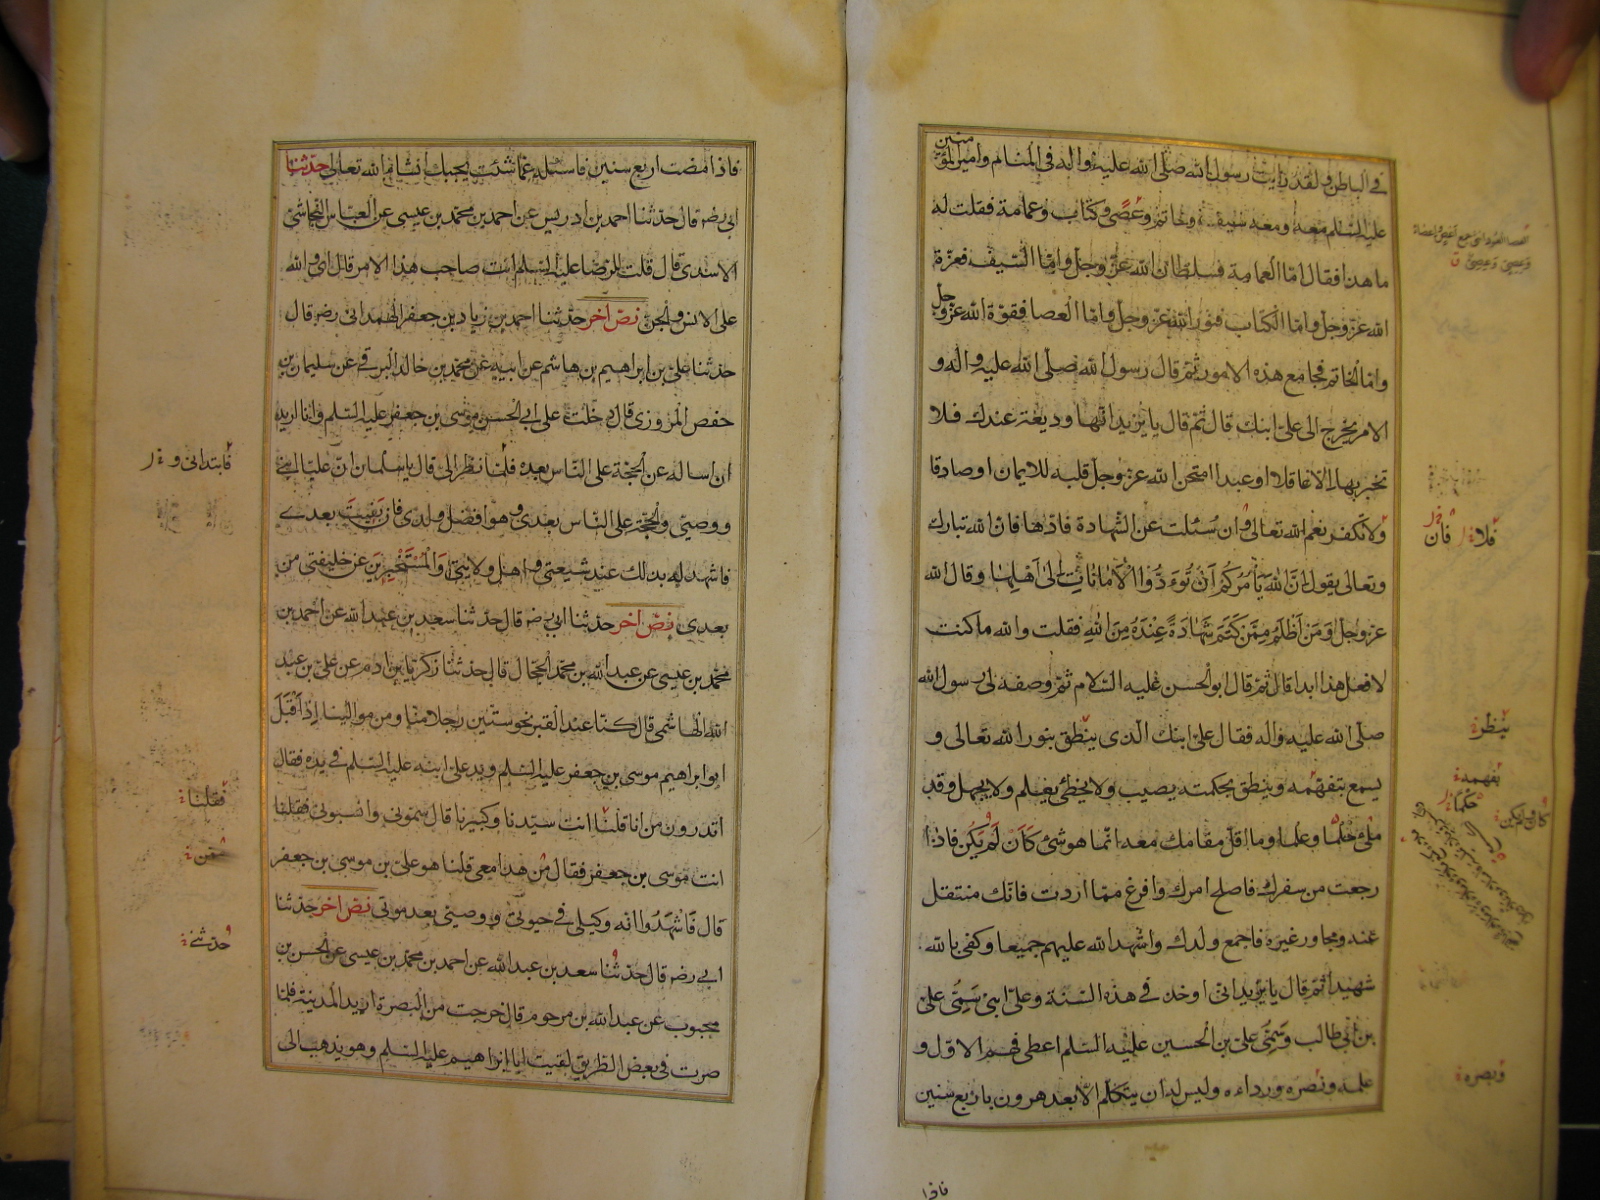 في الباطن ولقد رايت رسول الله صلى الله عليه واله في المنام وامير المؤمنين
عليه السلم معه ومعه سيف وخاتم وعصى وكتاب وعمامة فقلت له
ما هذا فقال اما العمامة فسلطان الله عز وجل واما السيف فعزة
الله عز وجل واما الكتاب فنور الله عز وجل واما العصا فقوة الله عز وجل
واما الخاتم فجامع هذه الامور ثم قال رسول الله صلى الله عليه واله و
الامر يخرج الى علي ابنك قال ثم قال يا يزيد انها وديعة عندك فلا
تخبر بها الا عاقلا او عبدا امتحن الله عز وجل قلبه للايمان او صادقا
ولا تكفر نعم الله تعالى وان سئلت عن الشهادة فادها فان الله تبارك
وتعالى يقول ان الله يأمركم ان تؤدوا الامانات الى اهلها وقال الله
عز وجل ومن اظلم ممن كتم شهادة عنده من الله فقلت والله ما كنت
لافعل هذا ابدا قال ثم قال ابو الحسن عليه السلام ثم وصفه لي رسول الله
صلى الله عليه واله فقال علي ابنك الذي ينطق بنور الله تعالى و
يسمع بتفهمه وينطق بحكمته يصيب ولا يخطئ يعلم ولا يجهل وقد
ملئ حلما وعلما وما اقل مقامك معه انما هو شئ كان لم يكن فاذا
رجعت من سفرك فاصلح امرك وافرغ مما اردت فانك منتقل
عنه ومجاور غيره فاجمع ولدك واشهد الله عليهم جميعا وكفى بالله
شهيدا ثم قال يا يزيد اني اوخذ في هذه السنة وعلي ابني سمي علي
بن ابي طالب وسمي علي بن الحسين عليه السلم اعطى فهم الاول و
علمه ونصره ورداءه وليس له ان يتكلم الا بعد هرون باربع سنين
فاذا
وعصي وعصي ق
فلا
فان
ينظر
بفهمه
حكما
كان ولم يكن
وبصره
فاذا مضت اربع سنين فاسئله عما شئت يجبك انشاء الله تعالى حدثنا
ابي رضه قال حدثنا احمد بن ادريس عن احمد بن محمد بن عيسى عن العباس النجاشي
الاسدي قال قلت للرضا عليه السلم انت صاحب هذا الامر قال اي والله
على الانس والجن نص اخر حدثنا احمد بن زياد بن جعفر الهمداني رضه قال
حدثنا علي بن ابراهيم بن هاشم عن ابيه عن محمد بن خالد البرقي عن سليمان بن
حفص المروزي قال دخلت على ابي الحسن موسى بن جعفر عليه السلم وانا اريد
ان اساله عن الحجة على الناس بعده فلما نظر الي قال يا سليمان ان عليا ابني
ووصيي والحجة على الناس بعدي وهو افضل ولدي فان بقيت بعدي
فاشهد له بذلك عند شيعتي واهل ولايتي والمستخبرين عن خليفتي من
بعدي نص اخر حدثنا ابي رضه قال حدثنا سعد بن عبد الله عن احمد بن
محمد بن عيسى عن عبد الله بن محمد الحجال قال حدثنا زكريا بن ادم عن علي بن عبد
الله الهاشمي قال كنا عند القبر نحو ستين رجلا منا ومن موالينا اذ اقبل
ابو ابراهيم موسى بن جعفر عليه السلم ويد علي ابنه عليه السلم في يده فقال
اتدرون من انا قلنا انت سيدنا وكبيرنا قال سموني وانسبوني فقلنا
انت موسى بن جعفر فقال من هذا معي قلنا هو علي بن موسى بن جعفر
قال فاشهدوا انه وكيلي في حيوتي ووصيي بعد موتي نص اخر حدثنا
ابي رضه قال حدثنا سعد بن عبد الله عن احمد بن محمد بن عيسى عن الحسن بن
محبوب عن عبد الله بن مرحوم قال خرجت من البصرة اريد المدينة فلما
صرت في بعض الطريق لقيت ابا ابراهيم عليه السلم وهو يذهب الى
فابتداني و
فقلنا
فمن
حدثني